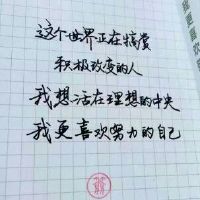 这个世界正在犒赏
积极改变的人
我想活在理想的中央
我更喜欢努力的自己